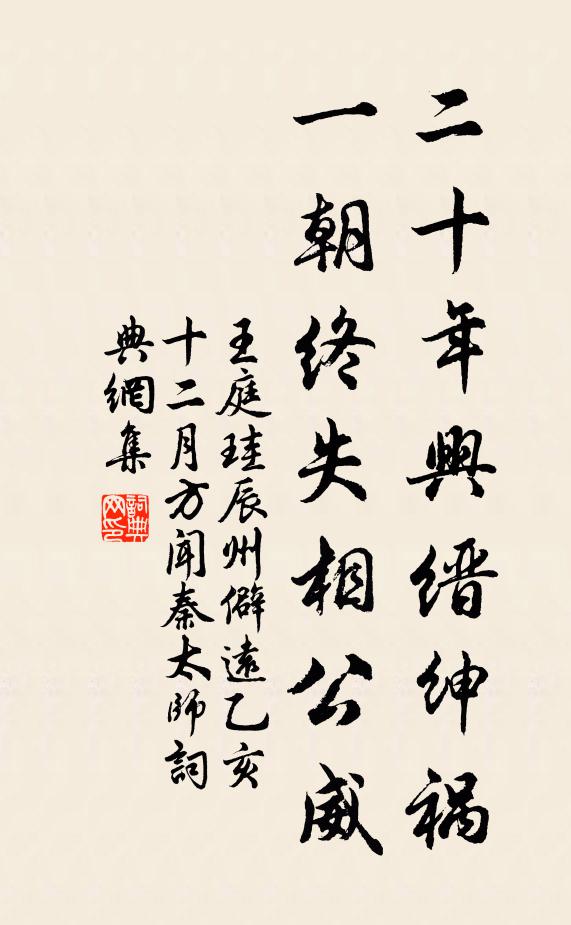 二十年興缙紳禍
一朝終失相公威
王庭珪辰州僻遠乙亥
十二月方聞秦太師詞
典網集
詞典网印